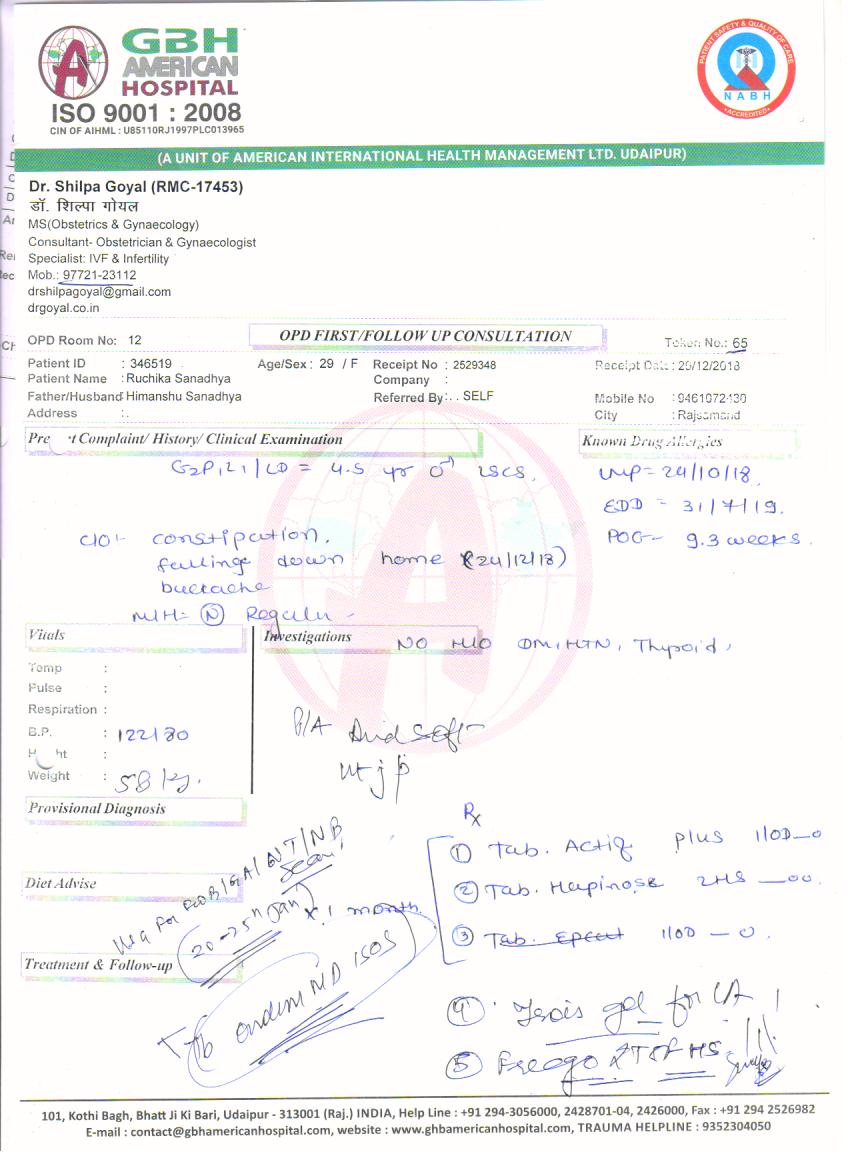 GBH
AMERICAN
HOSPITAL
ISO 9001 : 2008
CIN OF AIHML : U85110RJ1997PLC013965
PATIENT SAFETY & QUALITY OF CARE
NABH
ACCREDITED
(A UNIT OF AMERICAN INTERNATIONAL HEALTH MANAGEMENT LTD. UDAIPUR)
Dr. Shilpa Goyal (RMC-17453)
डॉ. शिल्पा गोयल
MS(Obstetrics & Gynaecology)
Consultant- Obstetrician & Gynaecologist
Specialist: IVF & Infertility
Mob.: 97721-23112
drshilpagoyal@gmail.com
drgoyal.co.in
OPD Room No: 12
OPD FIRST/FOLLOW UP CONSULTATION
Token No.: 65
Patient ID : 346519 Age/Sex : 29 / F Receipt No : 2529348 Receipt Date : 29/12/2018
Patient Name : Ruchika Sanadhya Company :
Father/Husband: Himanshu Sanadhya Referred By : . . SELF Mobile No : 9461072130
Address : . City : Rajsamand
Pre t Complaint/ History/ Clinical Examination
Known Drug Allergies
G2P1L1 / LD = 4.5 yr ♂ LSCS,
LMP= 24/10/18,
EDD = 31/7/19.
POG- 9.3 weeks.
C/O:- constipation,
falling down home (24/12/18)
M/H= (N) Regular -
Vitals
Investigations
NO H/O DM, HTN, Thyroid,
Temp :
Pulse :
Respiration :
B.P. : 122/80
H ht :
Weight : 58 kg.
P/A soft
Provisional Diagnosis
Rx
1) Tab. Actif plus 1/OD—0
Diet Advise
2) Tab. 2HS —00.
x 1 month
3) Tab. 1/OD — 0.
USG For /GA/ NT/NB
scan
(20-25th Jan)
Treatment & Follow-up
Tab ondem MD SOS
4) gel for LA
5) Freego 2TSF HS
101, Kothi Bagh, Bhatt Ji Ki Bari, Udaipur - 313001 (Raj.) INDIA, Help Line : +91 294-3056000, 2428701-04, 2426000, Fax : +91 294 2526982
E-mail : contact@gbhamericanhospital.com, website : www.ghbamericanhospital.com, TRAUMA HELPLINE : 9352304050